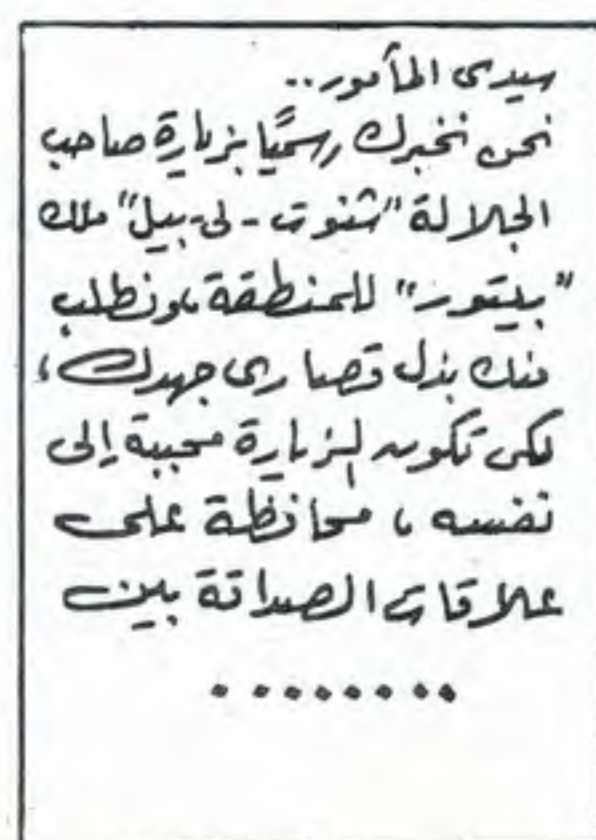 سيدى المأمور..
نحن نخبرك رسميًا بزيارة صاحب
الجلالة "شنوت - لى - بيل" ملك
"بيتور" للمنطقة، ونطلب
منك بذل قصارى جهدك،
لكى تكون الزيارة محببة إلى
نفسه، محافظة على
علاقات الصداقة بين
........